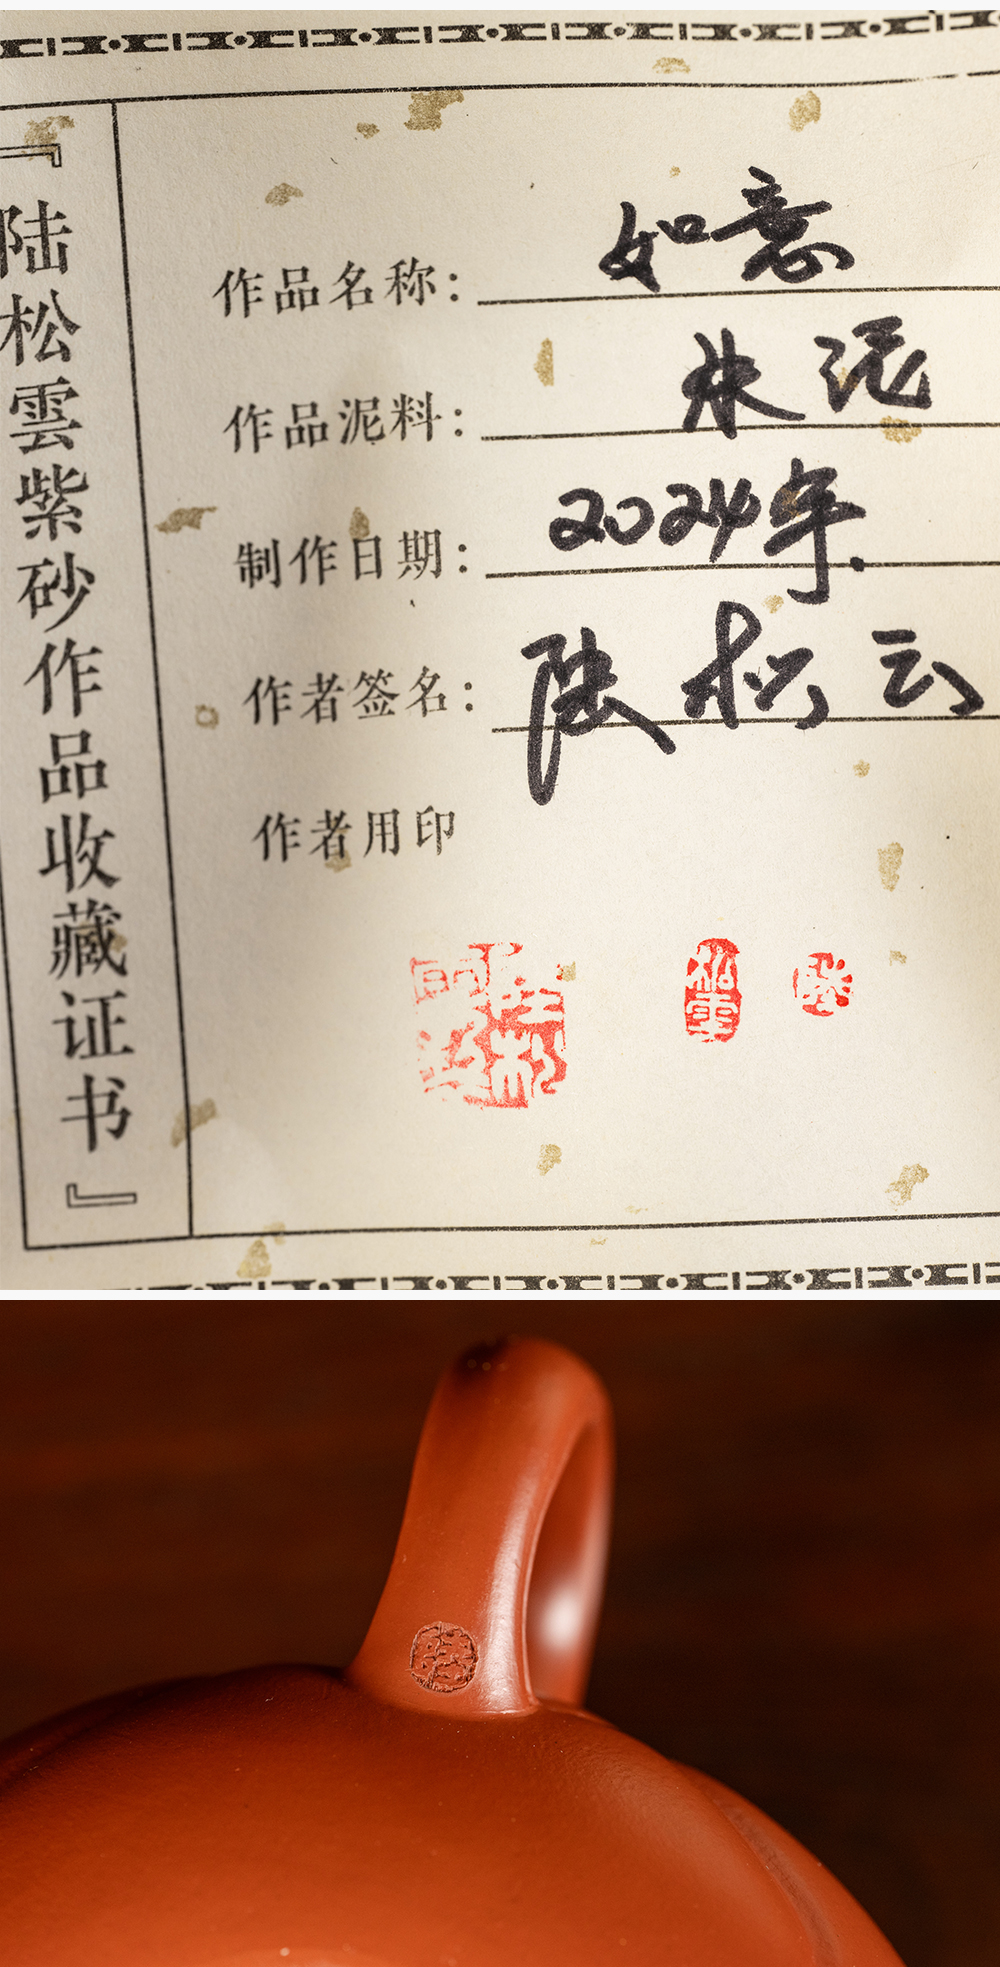 『陆松雲紫砂作品收藏证书』
作品名称：如意
作品泥料：朱泥
制作日期：2024年.
作者签名：陆松云
作者用印
松雲
陆